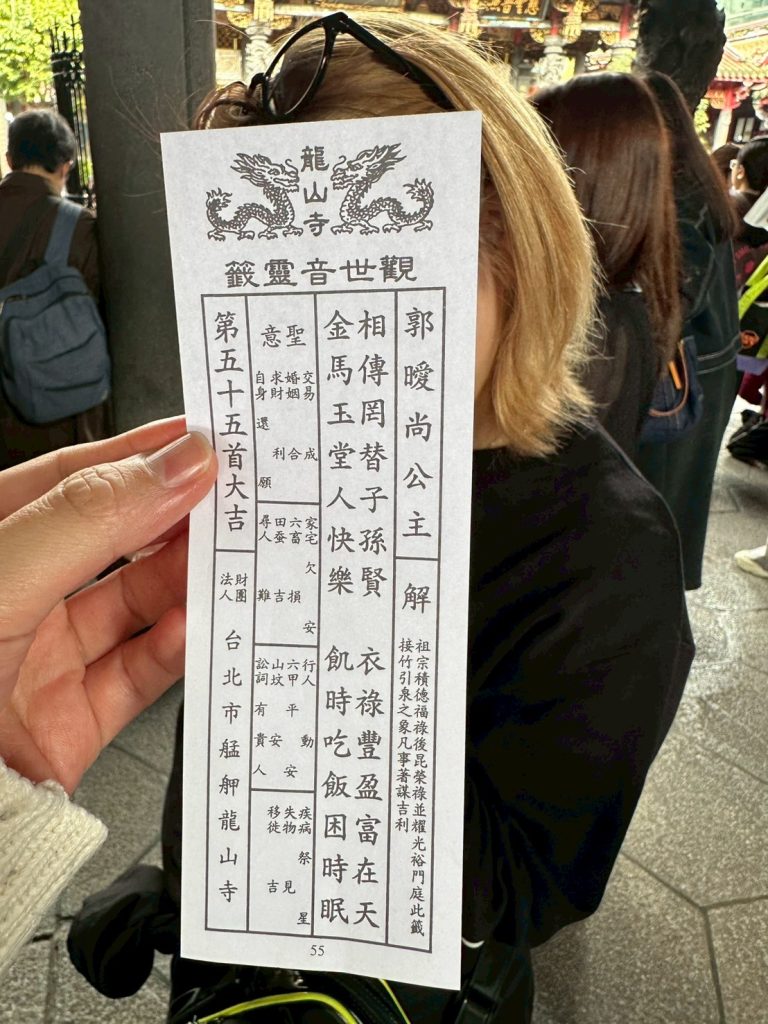 龍山寺
觀世音靈籤
郭曖尚公主
解
祖宗積德福祿後昆榮祿並耀光裕門庭此籤
接竹引泉之象凡事著謀吉利
相傳罔替子孫賢 衣祿豐盈富在天
金馬玉堂人快樂 飢時吃飯困時眠
聖意
交易 成
婚姻 合
求財 利
自身 還願
家宅 欠安
六畜 損
田蚕 吉
尋人 難
行人 動
六甲 平安
山坟 安
訟詞 有貴人
疾病 祭星
失物 見
移徙 吉
第五十五首大吉
財團法人 台北市艋舺龍山寺
55